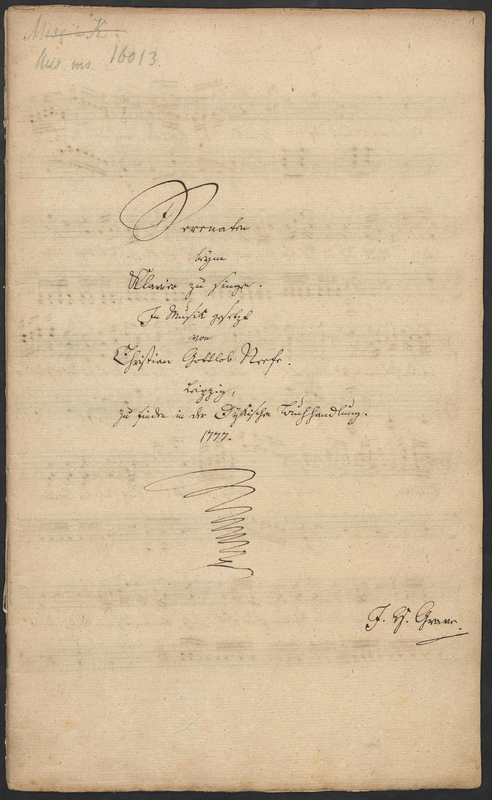 1
Mus. ms. 16013.
Serenaten
beym
Klavier zu singen.
In Musik gesetzt
von
Christian Gottlob Neefe.
Leipzig,
zu finden in der Dykischen Buchhandlung.
1777.
J. H. Grave.